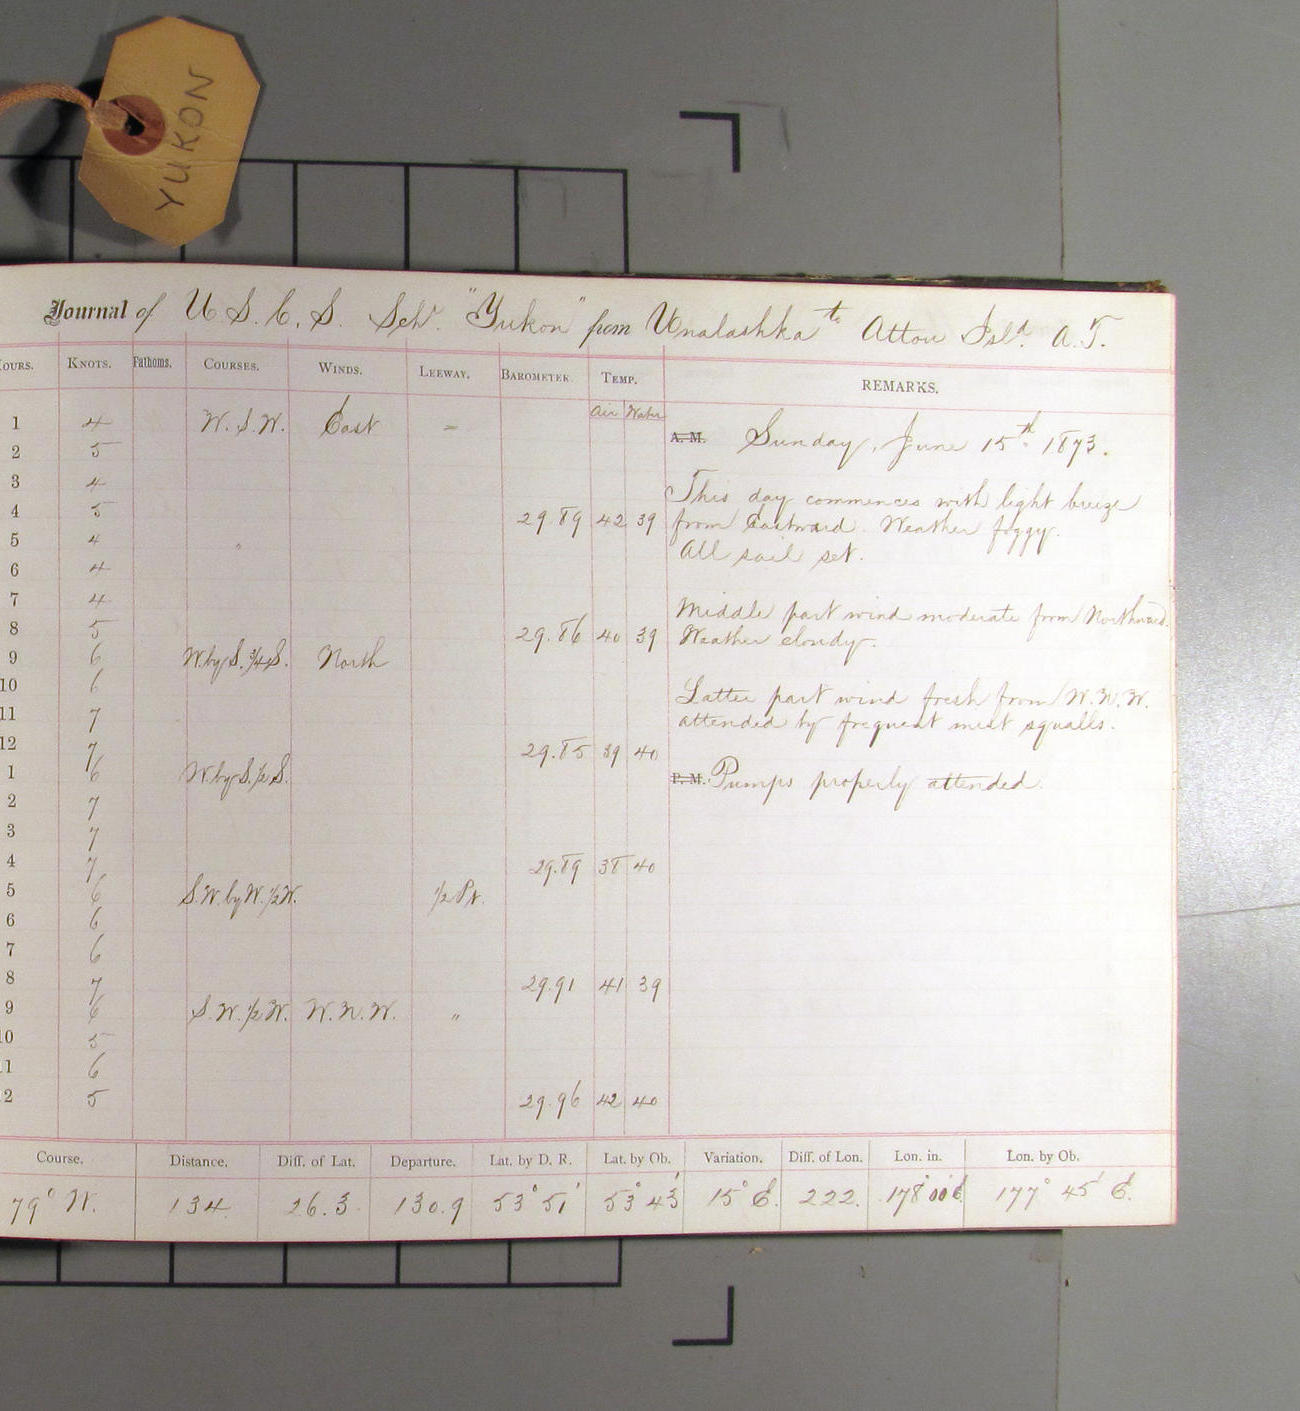 YUKON
Journal of U. S. C. S. Schr. "Yukon" from Unalashka to Attou Isld. A. T.
OURS. KNOTS. Fathoms. COURSES. WINDS. LEEWAY. BAROMETER. TEMP. REMARKS.
Air Water
1 4 W. S. W. East "
A. M. Sunday, June 15th 1873.
2 5
3 4
This day commences with light breeze
4 5 29.89 42 39 from Eastward. Weather foggy.
5 4 "
All sail set.
6 4
7 4
Middle part wind moderate from Northward.
8 5 29.86 40 39 Weather cloudy.
9 6 W. by S. 3/4 S. North
10 6 Latter part wind fresh from W. N. W.
11 7 attended by frequent mist squalls.
12 7 29.85 39 40
1 6 W. by S. 1/2 S. P. M. Pumps properly attended.
2 7
3 7
4 7 29.89 38 40
5 6 S. W. by W. 1/2 W. 1/2 Pt.
6 6
7 6
8 7 29.91 41 39
9 6 S. W. 1/2 W. W. N. W. "
10 5
11 6
2 5 29.96 42 40
Course. Distance. Diff. of Lat. Departure. Lat. by D. R. Lat. by Ob. Variation. Diff. of Lon. Lon. in. Lon. by Ob.
79° W. 134. 26.3. 130.9 53° 51' 53° 43' 15° E. 222. 178° 00' E. 177° 45' E.